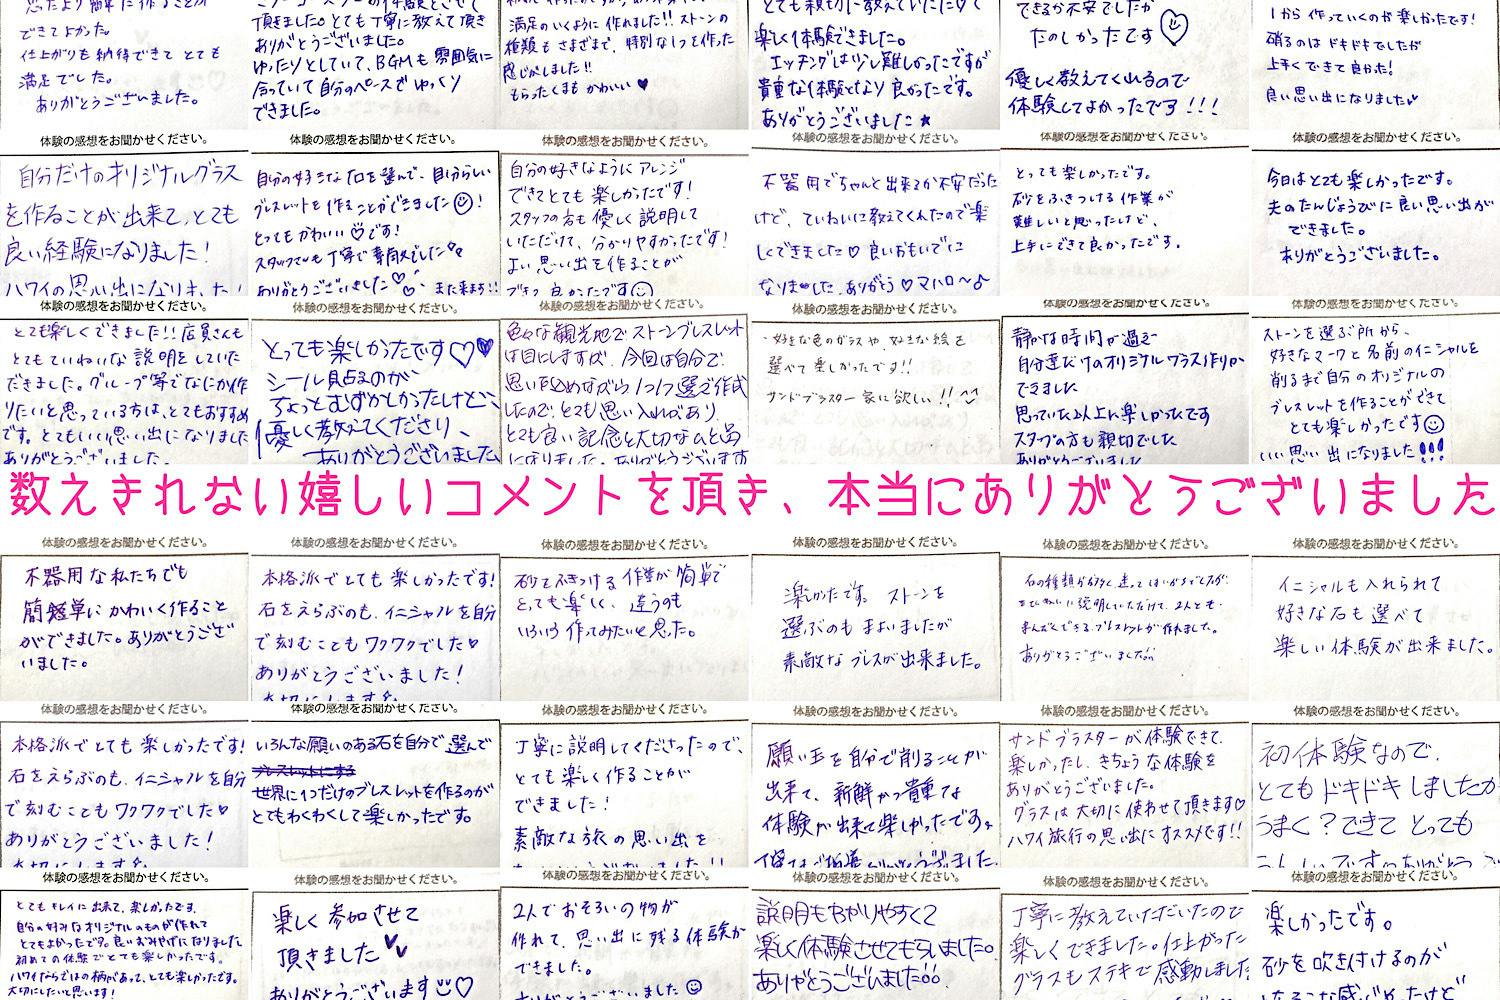 できてよかった。
仕上がりも納得できて とても
満足でした。
ありがとうございました。
頂きました。とても丁寧に教えて頂き
ありがとうございました。
ゆったりとしていて、BGMも雰囲気に
合っていて自分のペースで ゆっくり
できました。
満足のいくように作れました!! ストーンの
種類も さまざまで、特別な1つを作った
感じがしました!!
もらったくまも かわいい♥
とても親切に教えていただいて
楽しく体験できました。
エッチングは少し難しかったですが
貴重な体験となり 良かったです。
ありがとうございました★
できるか不安でしたが
たのしかったです
優しく教えてくれるので
体験してよかったです!!!
1から 作っていくのが楽しかったです!
硝るのは ドキドキでしたが
上手くできて良かった!
良い思い出になりました
体験の感想をお聞かせください。
体験の感想をお聞かせください。
体験の感想をお聞かせください。
体験の感想をお聞かせください。
体験の感想をお聞かせください。
体験の感想をお聞かせください。
自分だけのオリジナルグラス
を作ることが出来て、とても
良い経験になりました!
ハワイの思い出になりました!
自分の好きな石を選んで、自分らしい
ブレスレットを作ることができました!
とってもかわいい♡です!
スタッフさんも丁寧で素敵でした
ありがとうございました また来ます!!
自分の好きなように アレンジ
できてとても楽しかったです!
スタッフの方も優しく説明して
いただけて、分かりやすかったです!
よい思い出を作ることが
できて 良かったです
不器用でちゃんと出来るか不安だった
けど、ていねいに教えてくれたので楽
しくできました♡ 良いおもいでに
なりました。ありがとう♡マハロ〜♪
とっても楽しかったです。
砂をふきつける作業が
難しいと思ったけど、
上手にできて良かったです。
今日はとても楽しかったです。
夫のたんじょうびに良い思い出が
できました。
ありがとうございました。
体験の感想をお聞かせください。
体験の感想をお聞かせください。
体験の感想をお聞かせください。
体験の感想をお聞かせください。
体験の感想をお聞かせください。
体験の感想をお聞かせください。
とても楽しくできました!! 店員さんも
とてもていねいな説明をしていた
だきました。グループ等でなにか作
りたいと思っている方は、とてもおすすめ
です。とてもいい思い出になりました
ありがとうございました。
とっても楽しかったです♡♥
シール貼るのが
ちょっとむずかしかったけど、
優しく教えてくださり、
ありがとうございました
色々な観光地でストーンブレスレット
は目にしますが、今回は自分で、
思いを込めながら1つ1つ選んで作成
したので、とても思い入れがあり、
とても良い記念と大切なひと品
になりました。ありがとうございます
・好きな色のガラスや、好きな絵を
選べて楽しかったです!!
サンドブラスター 家に欲しい!!^^
静かな時間が過ごせ
自分達だけのオリジナルグラス作りが
できました
思っていた以上に楽しかったです
スタッフの方も親切でした
ありがとうございました
ストーンを選ぶ所から、
好きなマークと名前のイニシャルを
削るまで自分のオリジナルの
ブレスレットを作ることができて
とても楽しかったです
いい思い出になりました!!!
数えきれない嬉しいコメントを頂き、本当にありがとうございました
体験の感想をお聞かせください。
体験の感想をお聞かせください。
体験の感想をお聞かせください。
体験の感想をお聞かせください。
体験の感想をお聞かせください。
体験の感想をお聞かせください。
不器用な私たちでも
簡単にかわいく作ること
ができました。ありがとうござ
いました。
本格派でとても楽しかったです!
石をえらぶのも、イニシャルを自分
で刻むこともワクワクでした♥
ありがとうございました!
大切にします
砂をふきつける作業が簡単で
とっても楽しく、違うのも
いろいろ作ってみたいと思った。
楽しかったです。ストーンを
選ぶのもまよいましたが
素敵なブレスが出来ました。
ブレスレットが作れました。
ありがとうございました
イニシャルも入れられて
好きな石も選べて
楽しい体験が出来ました。
体験の感想をお聞かせください。
体験の感想をお聞かせください。
体験の感想をお聞かせください。
体験の感想をお聞かせください。
体験の感想をお聞かせください。
体験の感想をお聞かせください。
本格派でとても楽しかったです!
石をえらぶのも、イニシャルを自分
で刻むこともワクワクでした♥
ありがとうございました!
大切にします
いろんな願いのある石を自分で選んで
ブレスレットにする
世界に1つだけのブレスレットを作るのが
とてもわくわくして楽しかったです。
丁寧に説明してくださったので、
とても楽しく作ることが
できました!
素敵な旅の思い出を
願い玉を自分で削ることが
出来て、新鮮かつ貴重な
体験が出来て楽しかったです。
サンドブラスターが体験できて、
楽しかったし、きちょうな体験を
ありがとうございました。
グラスは大切に使わせて頂きます♡
ハワイ旅行の思い出にオススメです!!
初体験なので、
とてもドキドキしましたが
うまく?できて とっても
体験の感想をお聞かせください。
体験の感想をお聞かせください。
体験の感想をお聞かせください。
体験の感想をお聞かせください。
体験の感想をお聞かせください。
体験の感想をお聞かせください。
とてもキレイに出来て、楽しかったです。
自分の好みなオリジナルのものが作れて
とてもよかったです。良いおみやげになりました
初めての体験でとても楽しかったです。
ハワイならではの柄があって、とても楽しかったです。
大切にしたいと思います!
楽しく参加させて
頂きました
ありがとうございます
2人でおそろいの物が
作れて、思い出に残る体験が
できました。
ありがとうございました
説明もわかりやすくて
楽しく体験させてもらいました。
ありがとうございました
丁寧に教えていただいたので
楽しくできました。仕上がった
グラスもステキで感動しました
楽しかったです。
砂を吹き付けるのが